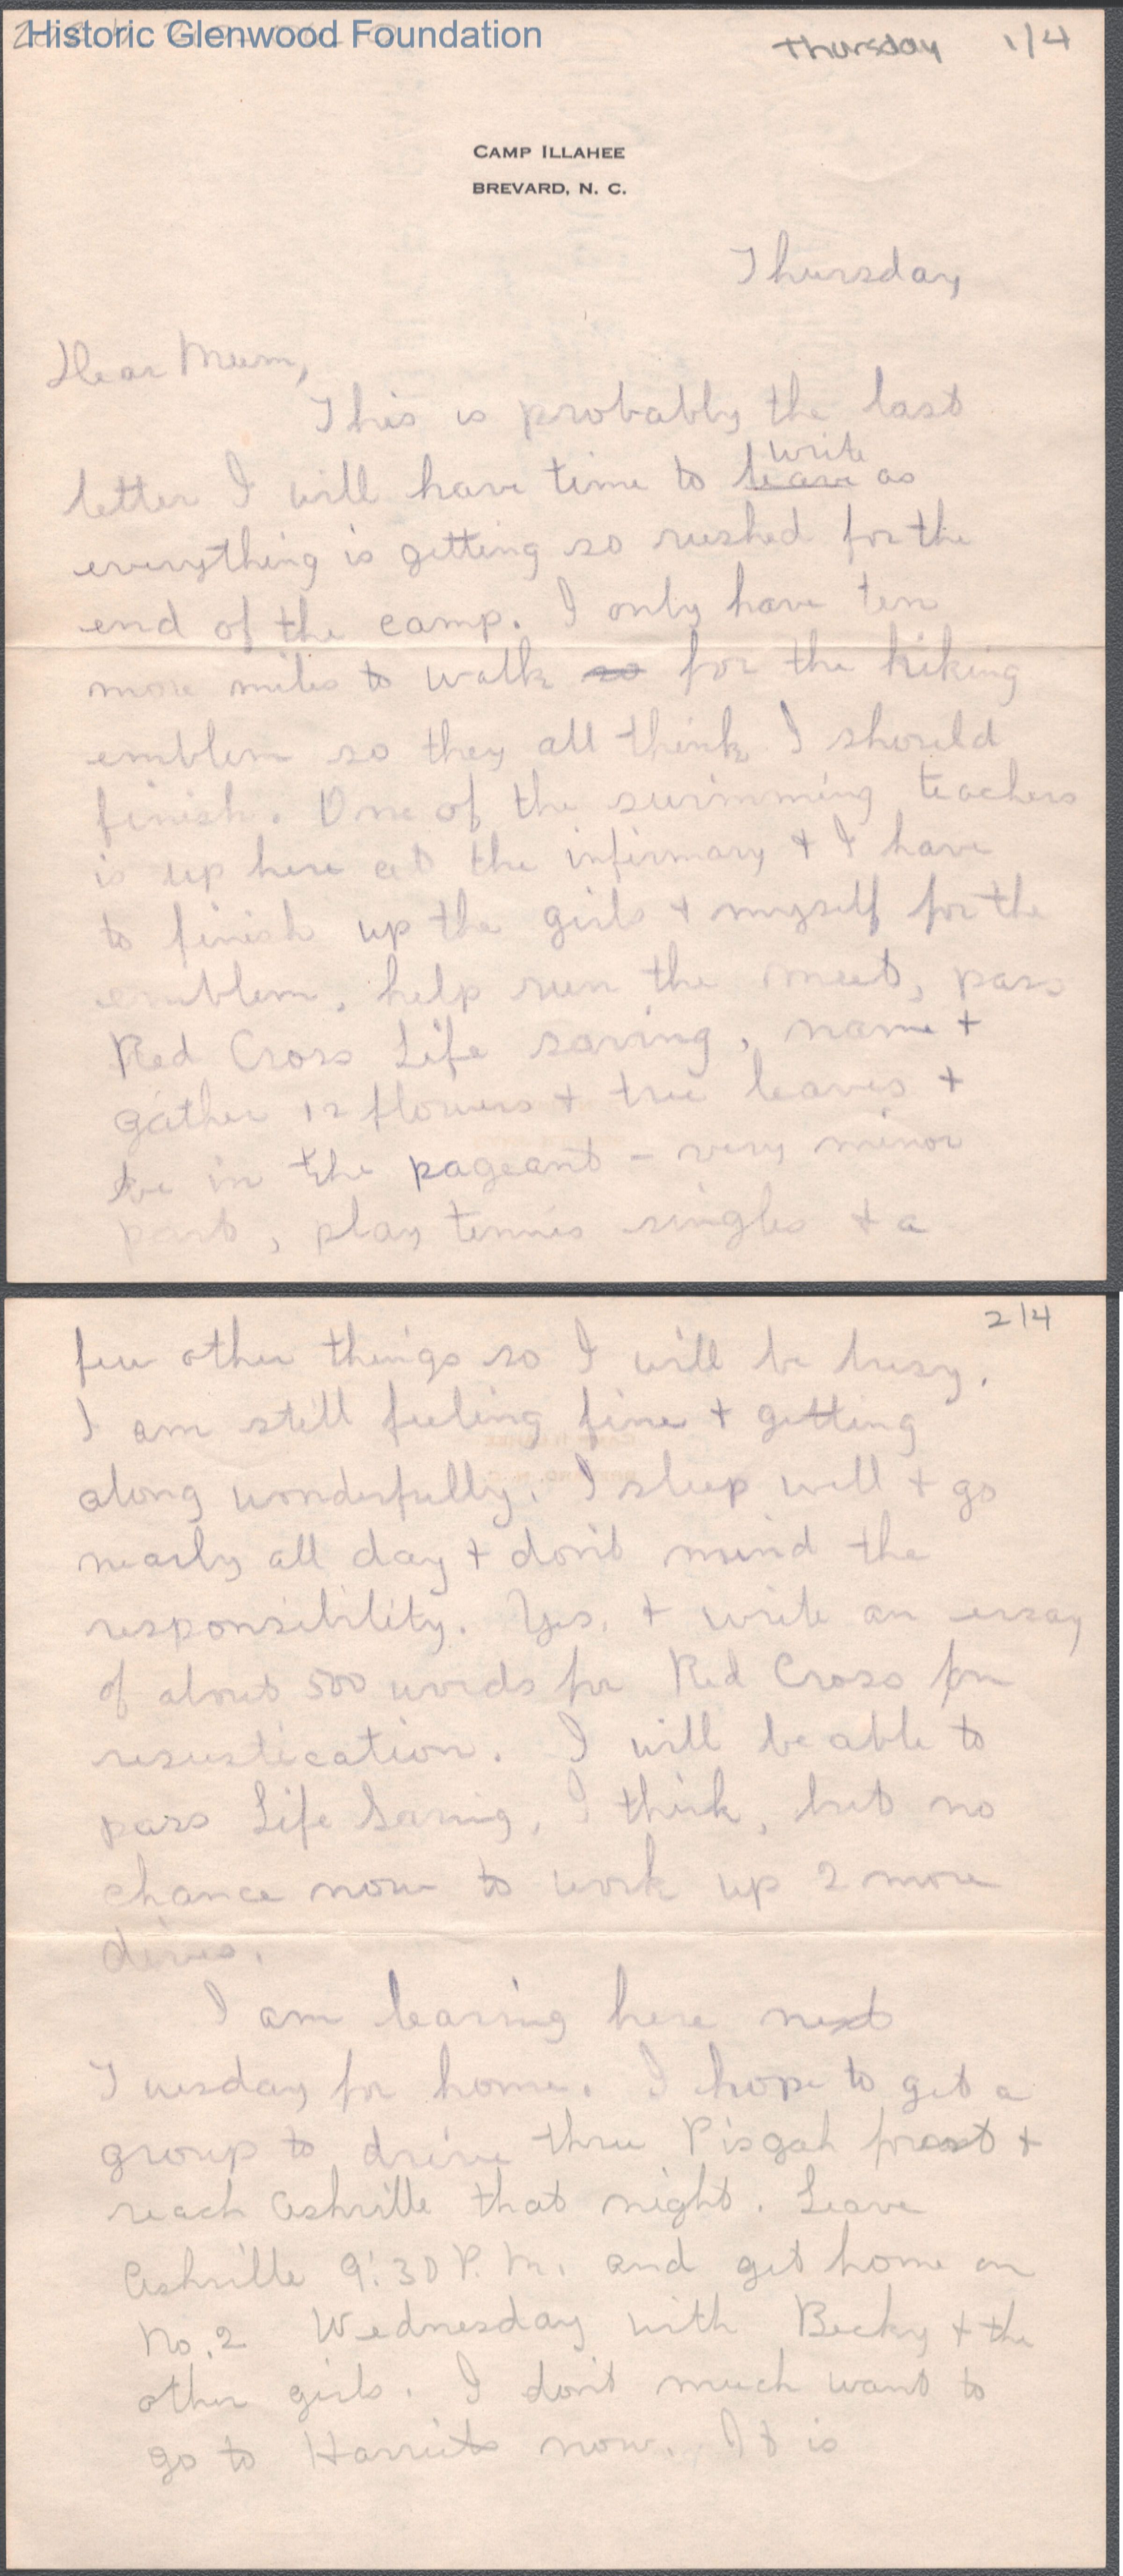 Historic Glenwood Foundation
Thursday 1/4
CAMP ILLAHEE
BREVARD, N. C.
Thursday
Dear Mum,
This is probably the last
write
letter I will have time to leave as
everything is getting so rushed for the
end of the camp. I only have ten
more miles to walk so for the hiking
emblem so they all think I should
finish. One of the swimming teachers
is up here at the infirmary + I have
to finish up the girls + myself for the
emblem, help run the meet, pass
Red Cross Life saving, name +
gather 12 flowers + tree leaves +
be in the pageant - very minor
part, play tennis singles + a
2/4
few other things so I will be busy.
I am still feeling fine + getting
along wonderfully. I sleep well + go
nearly all day + don't mind the
responsibility. Yes, + write an essay
of about 500 words for Red Cross on
resustication. I will be able to
pass Life Saving, I think, but no
chance now to work up 2 more
dives.
I am leaving here next
Tuesday for home. I hope to get a
group to drive thru Pisgah forest +
reach Ashville that night. Leave
Ashville 9:30 P.M. and get home on
No. 2 Wednesday with Becky + the
other girls. I don't much want to
go to Harriets now. It is